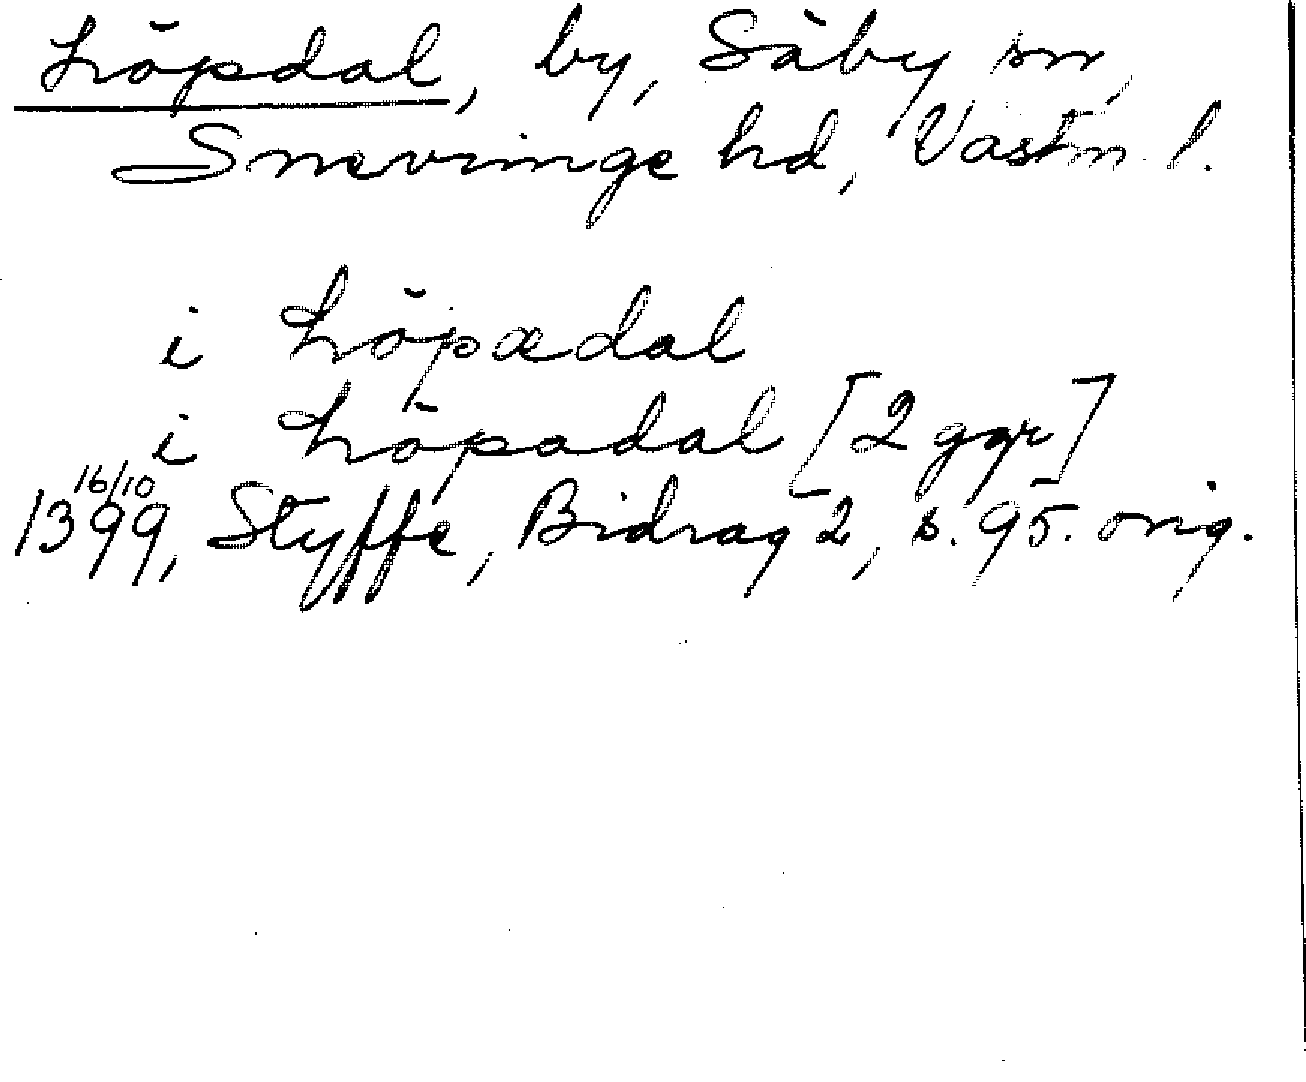 Löpdal, by, Säby sn,
Snevringe hd, Västm. l.
i Löpædal
i Löpadal [2 ggr]
16/10
1399, Styffe, Bidrag 2, s. 95. orig.